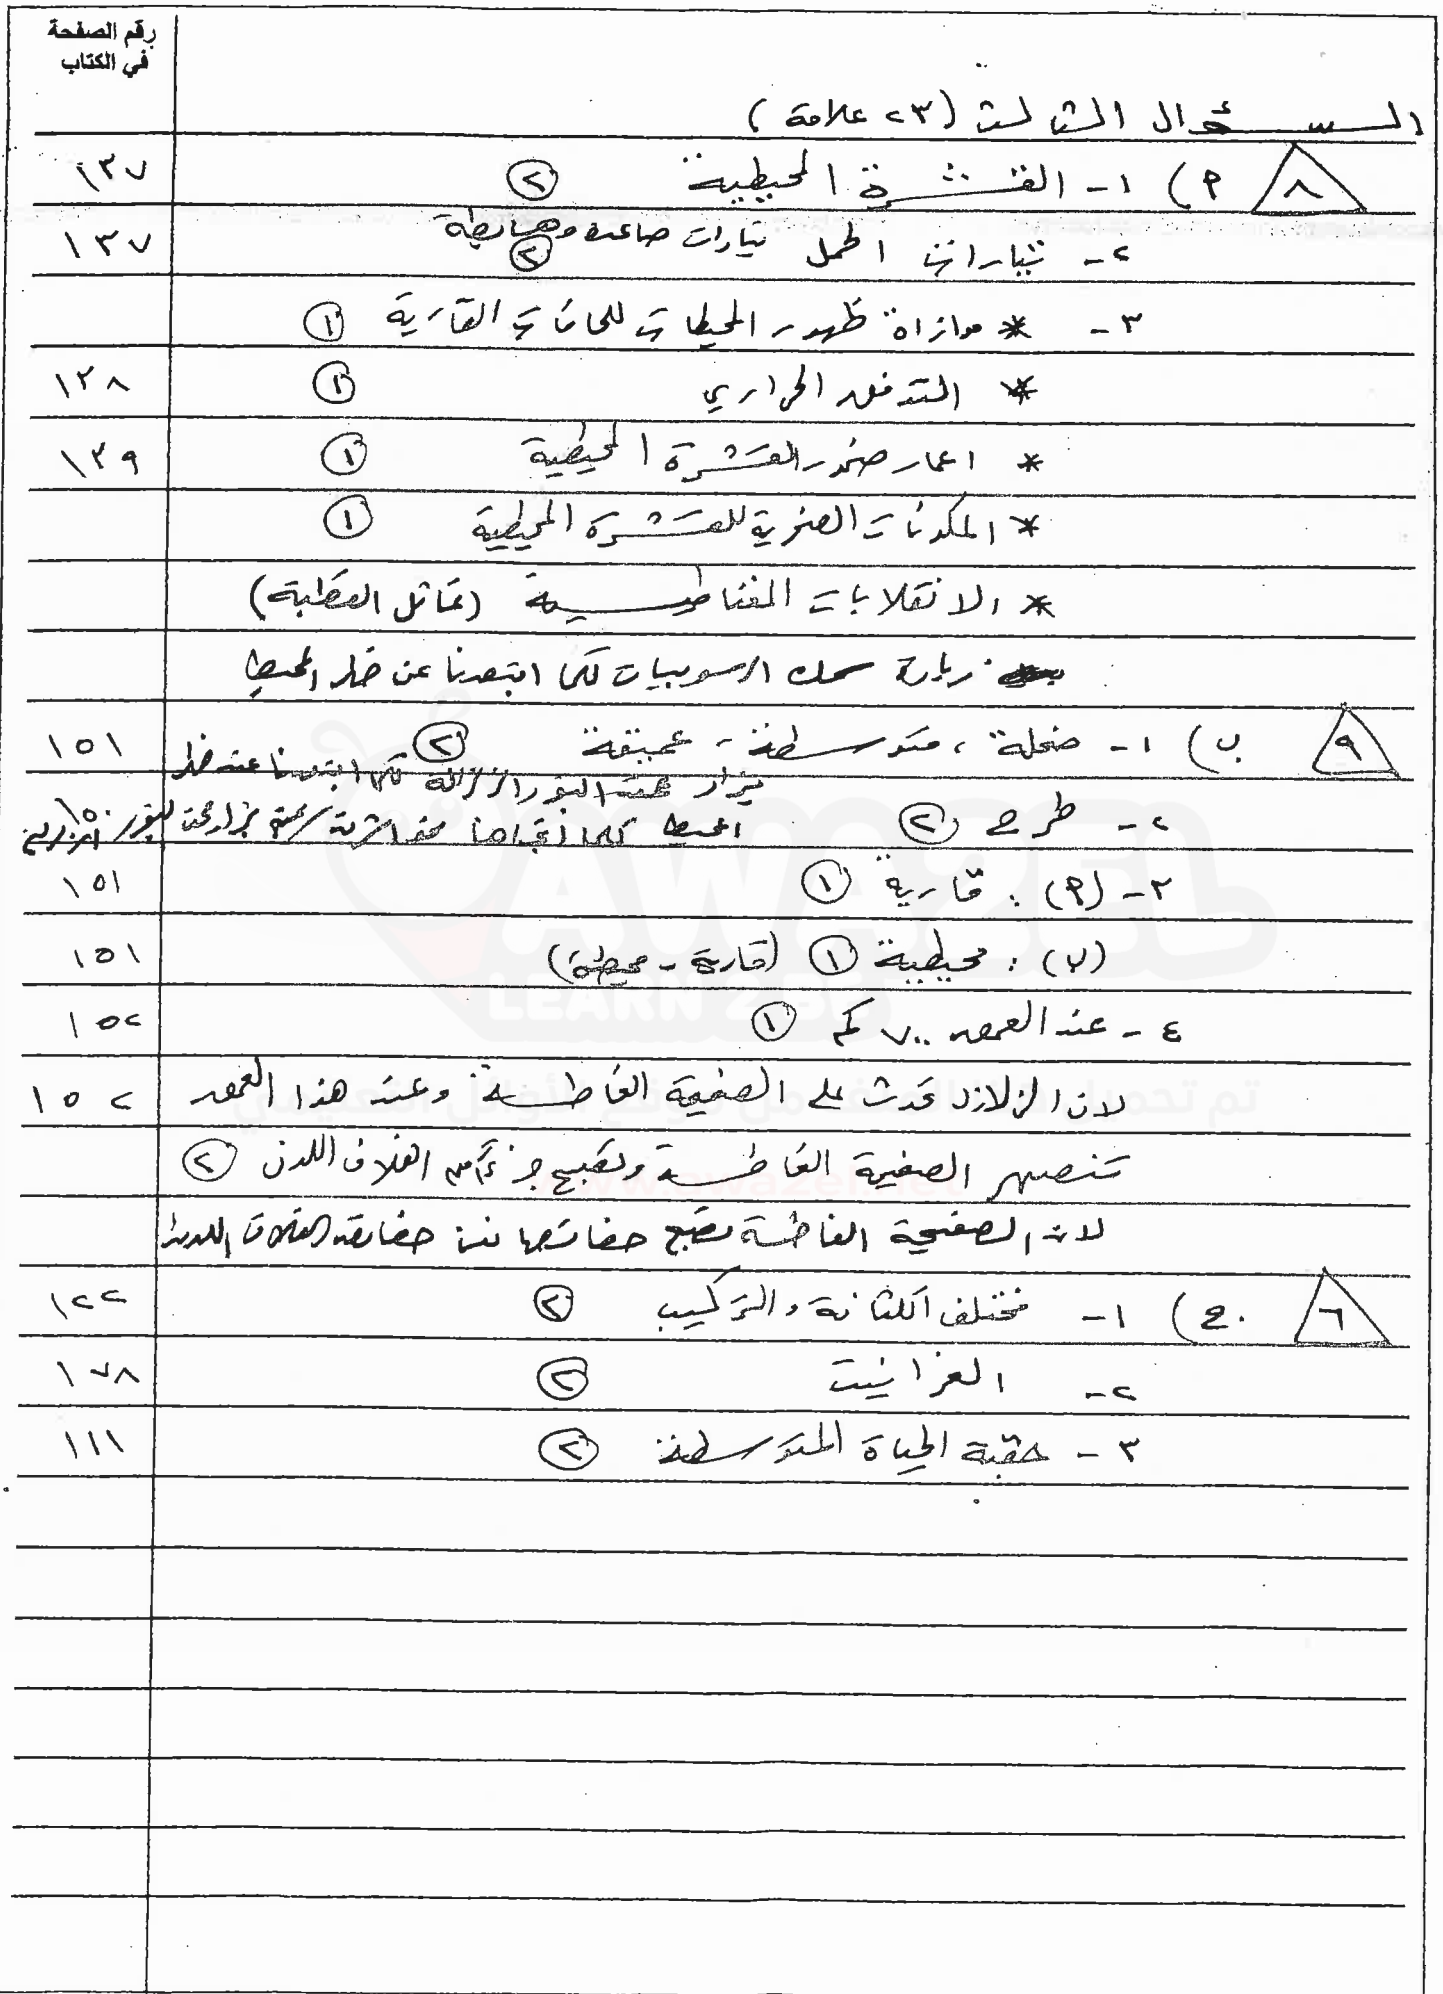 رقم الصفحة
في الكتاب
السؤال الثالث (٢٣ علامة)
٨ أ) ١- القشرة المحيطية ② ١٣٧
تيارات صاعدة وهابطة
٢- تيارات الحمل ② ١٣٧
٣- * موازاة ظهور المحيطات للحافات القارية ①
* التدفق الحراري ① ١٣٨
* اعمار صخور القشرة المحيطية ① ١٣٩
* المكونات الصخرية للقشرة المحيطية ①
* الانقلابات المغناطيسية (تماثل القطبة)
زيادة سمك الرسوبيات كلما ابتعدنا عن ظهر المحيط
٩ ب) ١- ضحلة، متوسطة، عميقة ② ١٥١
يزداد عمق البؤر الزلزالية كلما ابتعدنا عن ظهر
٢- طرح ② المحيط كلما اتجهنا ١٥٠
٣- (أ): قارية ① ١٥١
(ب): محيطية ① (قارية - محيطية) ١٥١
٤- عند العمق ٧٠٠ كم ① ١٥٢
لان الزلازل تحدث على الصفيحة الغاطسة وعند هذا العمق ١٥٢
تنصهر الصفيحة الغاطسة وتصبح جزء من الغلاف اللدن ②
لان الصفيحة الغاطسة تصبح خصائصها نفس خصائص الغلاف اللدن
٦ ج) ١- مختلف الكثافة والتركيب ② ١٢٢
٢- الغرانيت ② ١٧٨
٣- حقبة الحياة المتوسطة ② ١١١
AWAZEL
LEARN 2 BE
تم تحميل هذا الملف من موقع الأوائل التعليمي
www.awazel.net